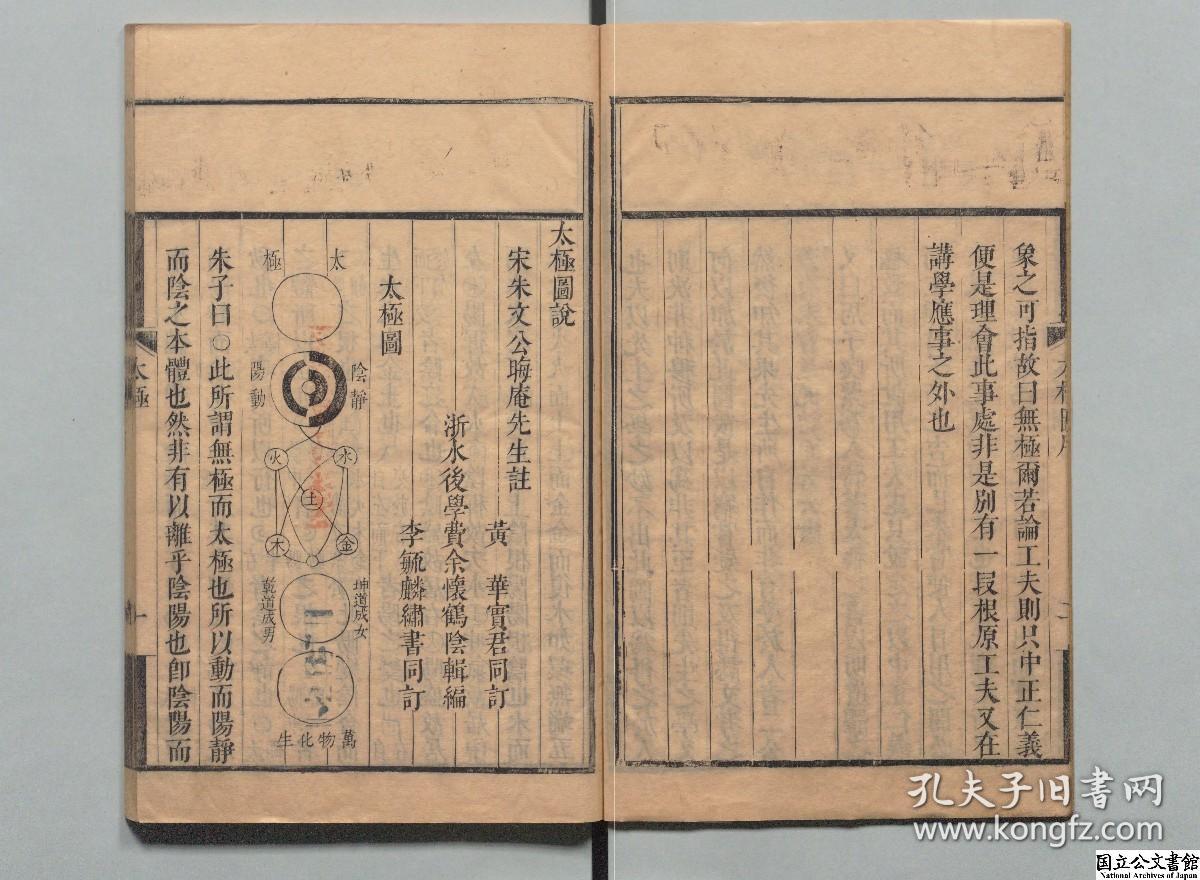 象之可指故曰無極爾若論工夫則只中正仁義
便是理會此事處非是別有一段根原工夫又在
講學應事之外也
太極圖說
宋朱文公晦庵先生註
黃華實君同訂
浙水後學費余懷鶴陰輯編
李毓麟繡書同訂
太極圖
太極
陰靜
陽動
水
火
土
金
木
坤道成女
乾道成男
萬物化生
朱子曰〇此所謂無極而太極也所以動而陽靜
而陰之本體也然非有以離乎陰陽也卽陰陽而
太極
一
孔夫子旧书网
www.kongfz.com
国立公文書館
National Archives of Japan